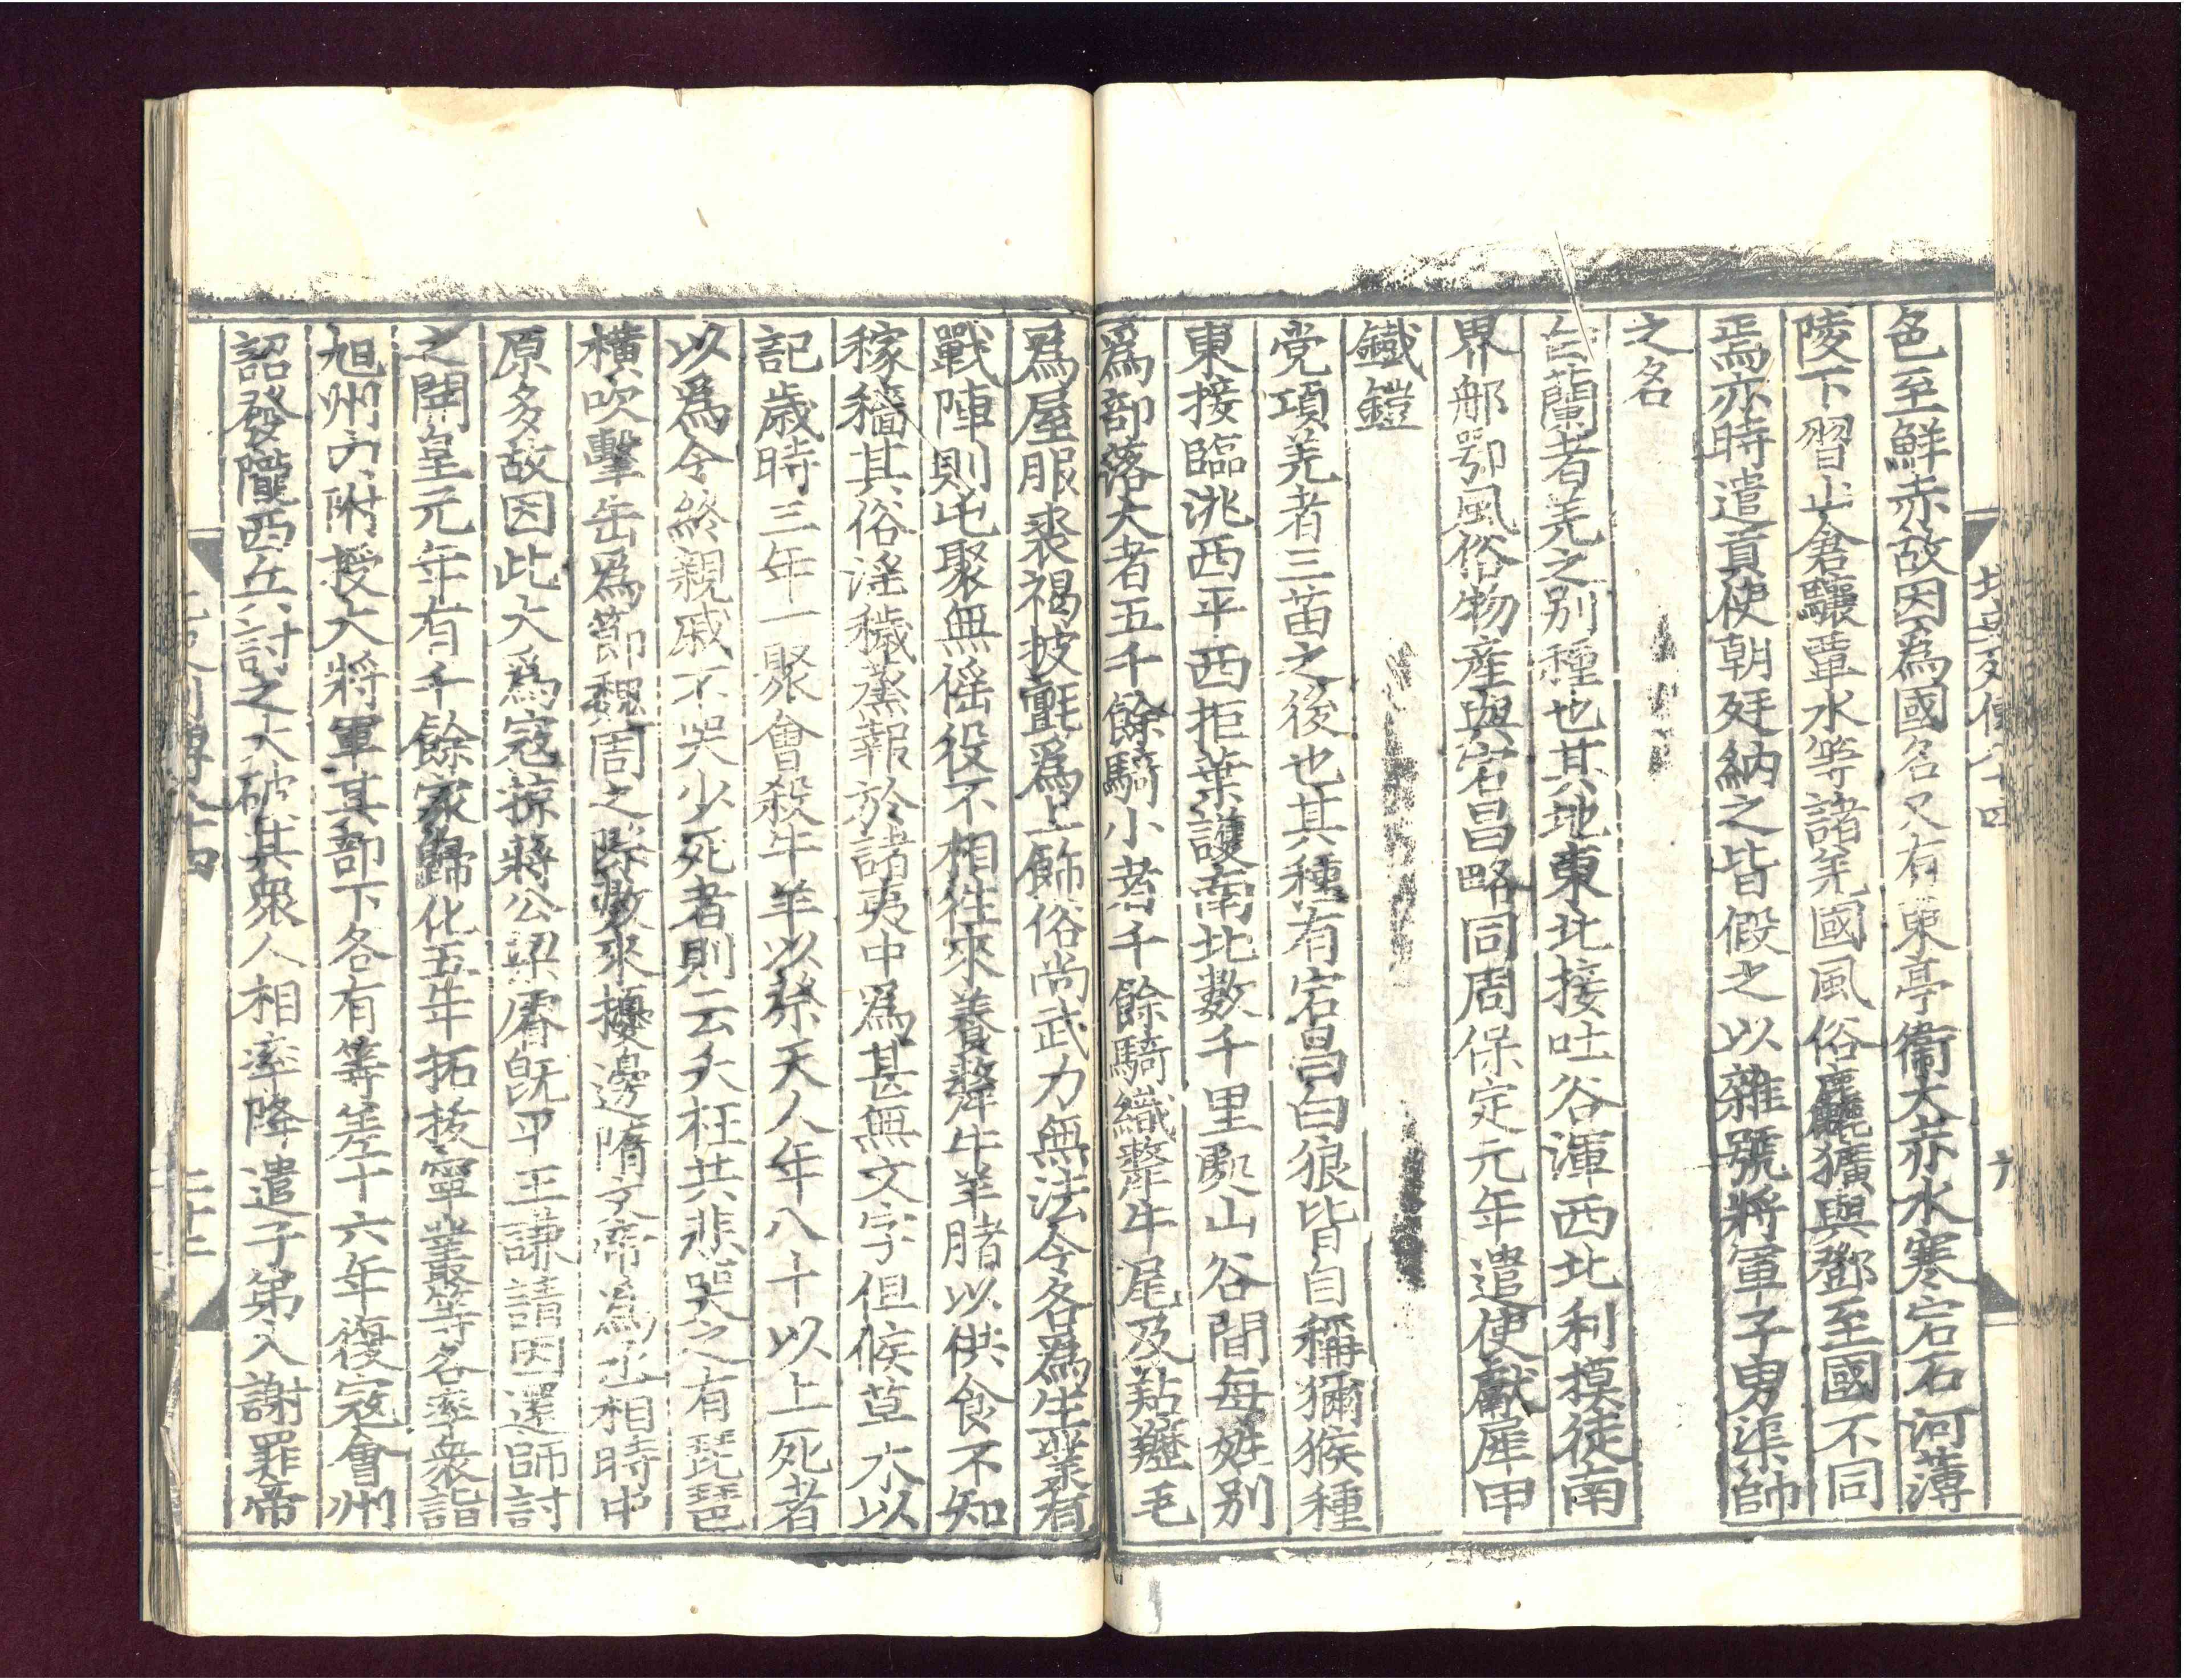 色至鮮赤故因爲國名又有東亭衞大赤水寒宕石河薄
陵下習山倉驤覃水等諸羌國風俗麤獷與鄧至國不同
焉亦時遣貢使朝廷納之皆假之以雜號將軍子男渠帥
之名
白蘭者羌之别種也其地東北接吐谷渾西北利摸徒南
界郍鄂風俗物產與宕昌略同周保定元年遣使獻犀甲
鐵鎧
党項羌者三苗之後也其種有宕昌白狼皆自稱獼猴種
東接臨洮西平西拒葉護南北數千里處山谷間每姓别
爲部落大者五千餘騎小者千餘騎織犛牛尾及䍽䍽毛
爲屋服裘褐披氊爲上飾俗尚武力無法令各爲生業有
戰陣則屯聚無傜役不相往來養犛牛羊腊以供食不知
稼穡其俗淫穢蒸報於諸夷中爲甚無文字但候草木以
記歲時三年一聚會殺牛羊以祭天人年八十以上死者
以爲令終親戚不哭少死者則云夭枉共悲哭之有琵琶
橫吹擊缶爲節魏周之際數來擾邊隋文帝爲丞相時中
原多故因此大爲寇掠蔣公梁睿旣平王謙請因還師討
之開皇元年有千餘家歸化五年拓拔寧叢等各率衆詣
旭州內附授大將軍其部下各有等差十六年復寇會州
詔發隴西兵討之大破其衆人相率降遣子弟入謝罪帝
二十二